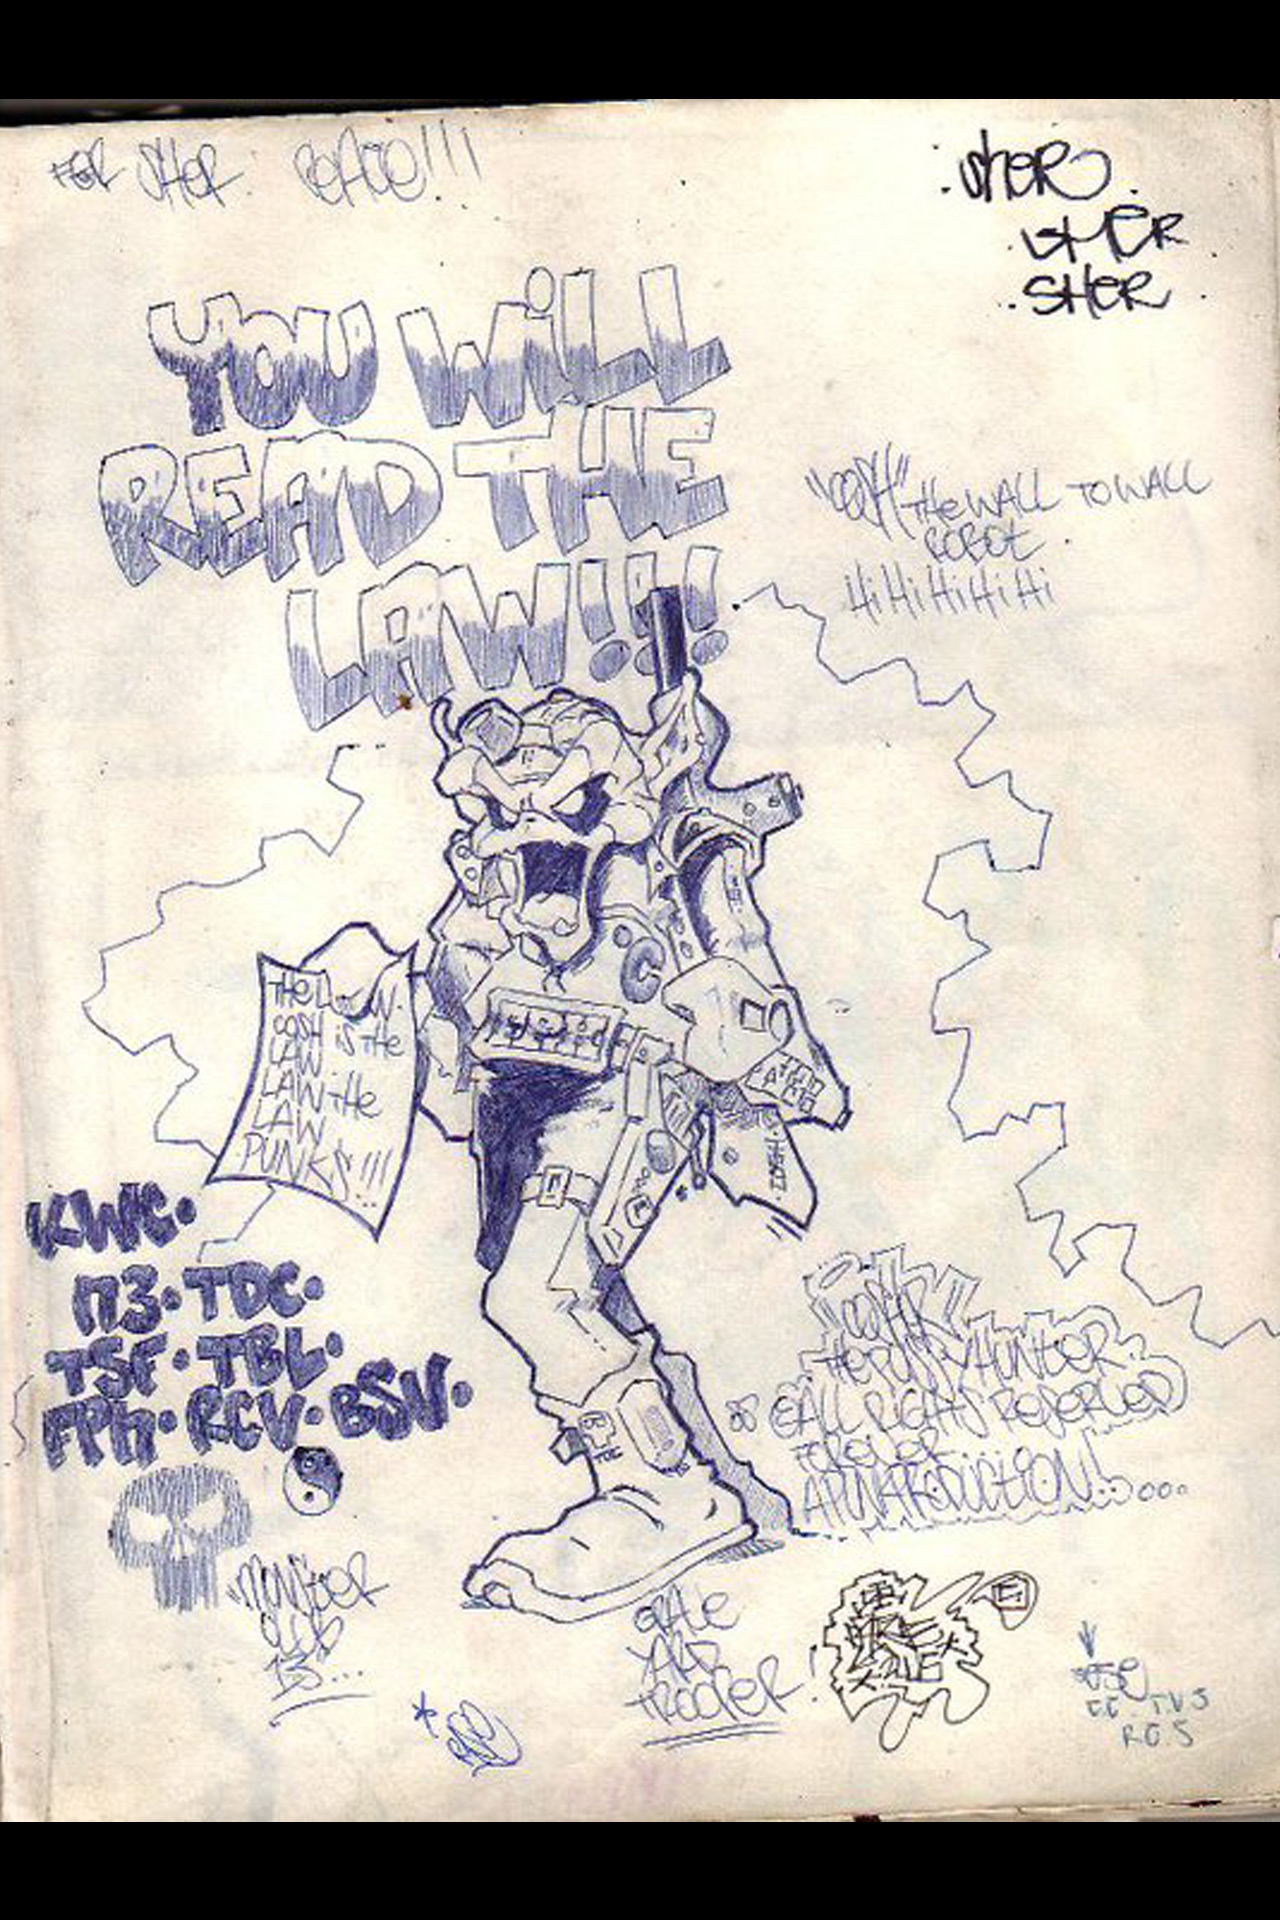 FOR SHER PEACE!!!
SHER
SHER
SHER
YOU WiLL
READ THE
LAW!!!
"COSH" THE WALL TO WALL
ROBOT.
HiHiHiHiHi
C
THE LAW.
COSH iS THE
LAW
LAW THE
LAW
PUNKS!!!
COSH
KWC.
173. TDC.
TSF. TBL.
FPM. RCV. BSV.
"COSH"
THE PUSSY HUNTER
© ALL RIGHTS RESERVED
FOREVER
A PRODUCTION!
MONSTER
CLUB
13...
GRAVE
YARD
TROOPER!
T.V.S
R.C.S